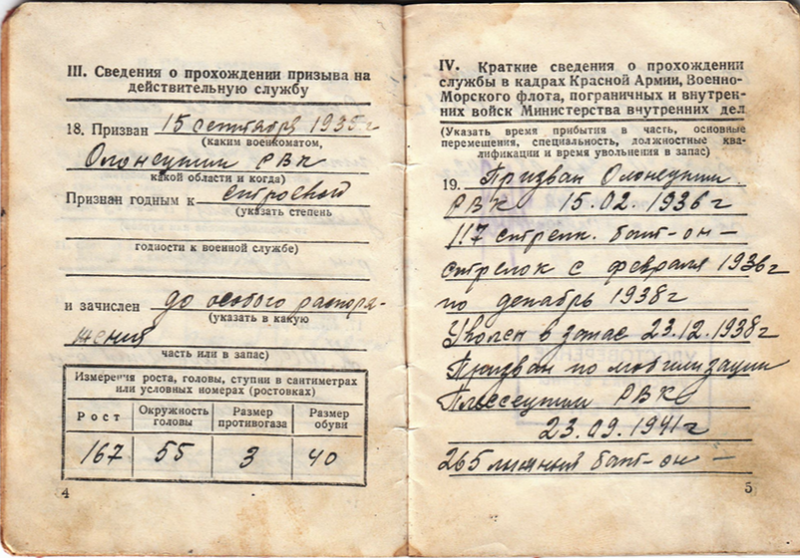 III. Сведения о прохождении призыва на
действительную службу
18. Призван 15 сентября 1935 г
(каким военкоматом,
Олонецким РВК
какой области и когда)
Признан годным к строевой
(указать степень
годности к военной службе)
и зачислен до особого распоря-
(указать в какую
жения
часть или в запас)
Измерения роста, головы, ступни в сантиметрах
или условных номерах (ростовках)
Рост Окружность головы Размер противогаза Размер обуви
167 55 3 40
4
IV. Краткие сведения о прохождении
службы в кадрах Красной Армии, Военно-
Морского флота, пограничных и внутрен-
них войск Министерства внутренних дел
(Указать время прибытия в часть, основные
перемещения, специальность, должностные ква-
лификации и время увольнения в запас)
19. Призван Олонецким
РВК 15.02.1936 г
117 стрелк. бат-он –
стрелок с февраля 1936 г
по декабрь 1938 г
Уволен в запас 23.12.1938 г
Призван по мобилизации
РВК
23.09.1941 г
265 лыжный бат-он –
5